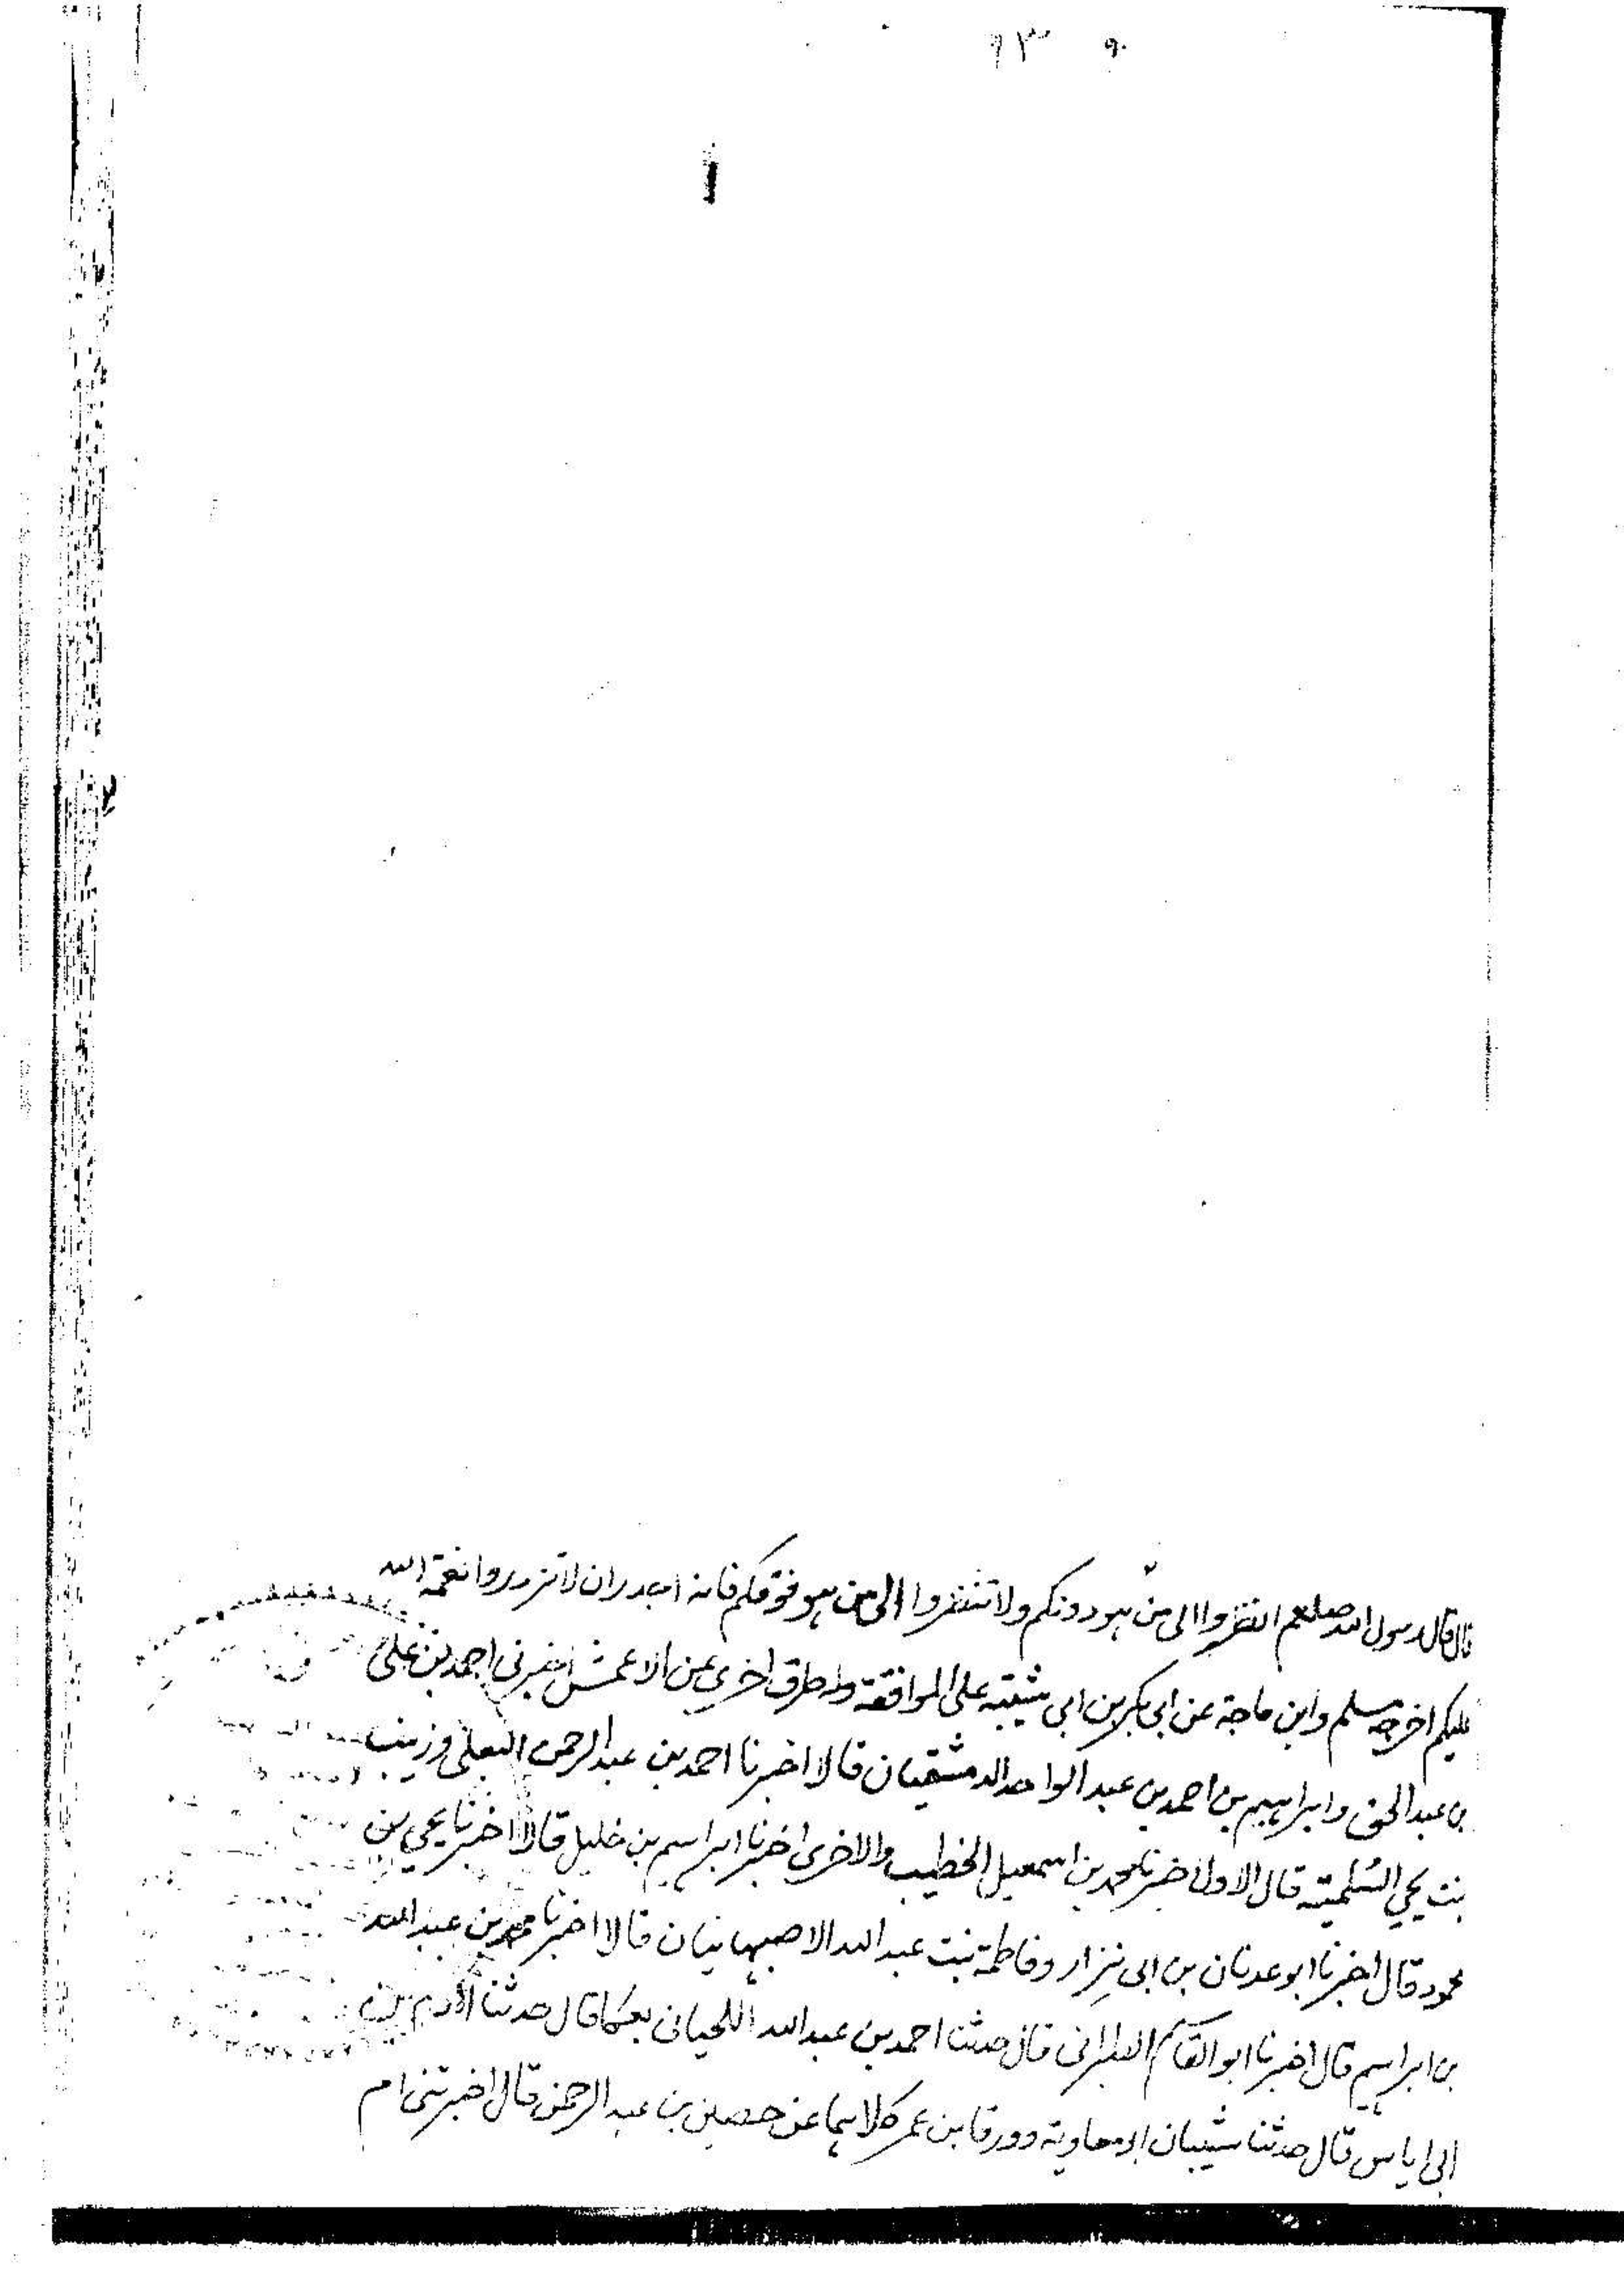 ٩٣ ٩
قال قال رسول الله صلعم انظروا الى من هو دونكم ولا تنظروا الى من هو فوقكم فانه اجدر ان لا تزدروا نعمة الله
عليكم اخرجه مسلم وابن ماجة عن ابى بكر بن ابى شيبته على الموافقة وله طرق اخرى عن الاعمش اخبرنى احمد بن على
بن عبد الحق وابراهيم بن احمد بن عبد الواحد الدمشقيان قالا اخبرنا احمد بن عبد الرحمن البعلى وزينب
بنت يحيى السُلميته قال الاول اخبرنا محمد بن اسمعيل الخطيب والاخرى اخبرنا ابراهيم بن خليل قالا اخبرنا يحيى بن
محمود قال اخبرنا ابو عدنان بن ابى نِزار وفاطمة بنت عبد الله الاصبهانيان قالا اخبرنا محمد بن عبد الله
بن ابراهيم قال اخبرنا ابو القاسم الطبرانى قال حدثنا احمد بن عبد الله اللحيانى بعكا قال حدثنا آدم بن
ابى اياس قال حدثنا شيبان ابو معاوية وورقا بن عمر كلاهما عن حصين بن عبد الرحمن قال اخبرتنى ام